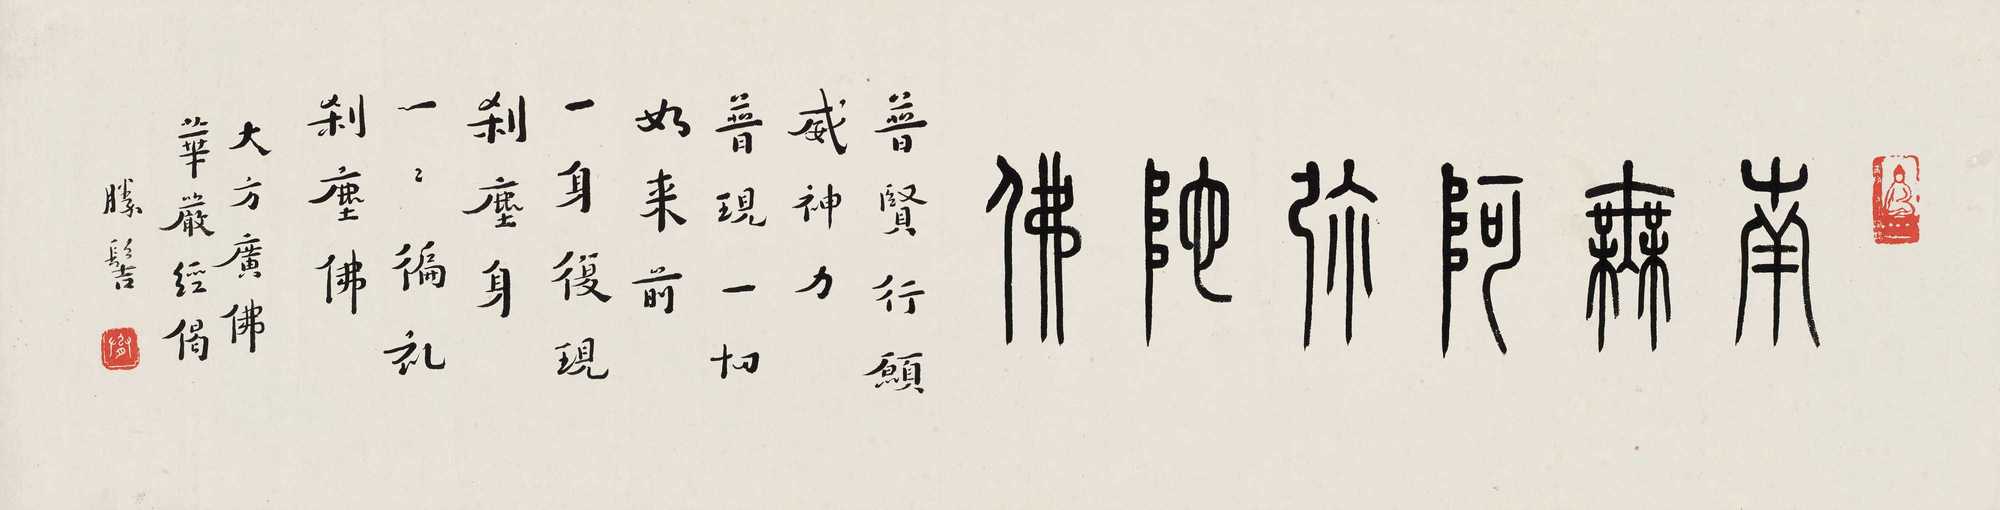 南無阿弥陀佛
普賢行願
威神力
普現一切
如来前
一身復現
刹塵身
一〻徧礼
刹塵佛
大方廣佛
華嚴經偈
勝髻